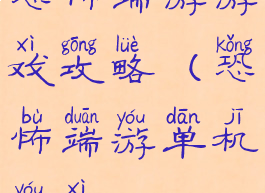 xì gōng lüè kǒng
戏攻略（恐
bù duān yóu dān jī
怖端游单机
yóu xì